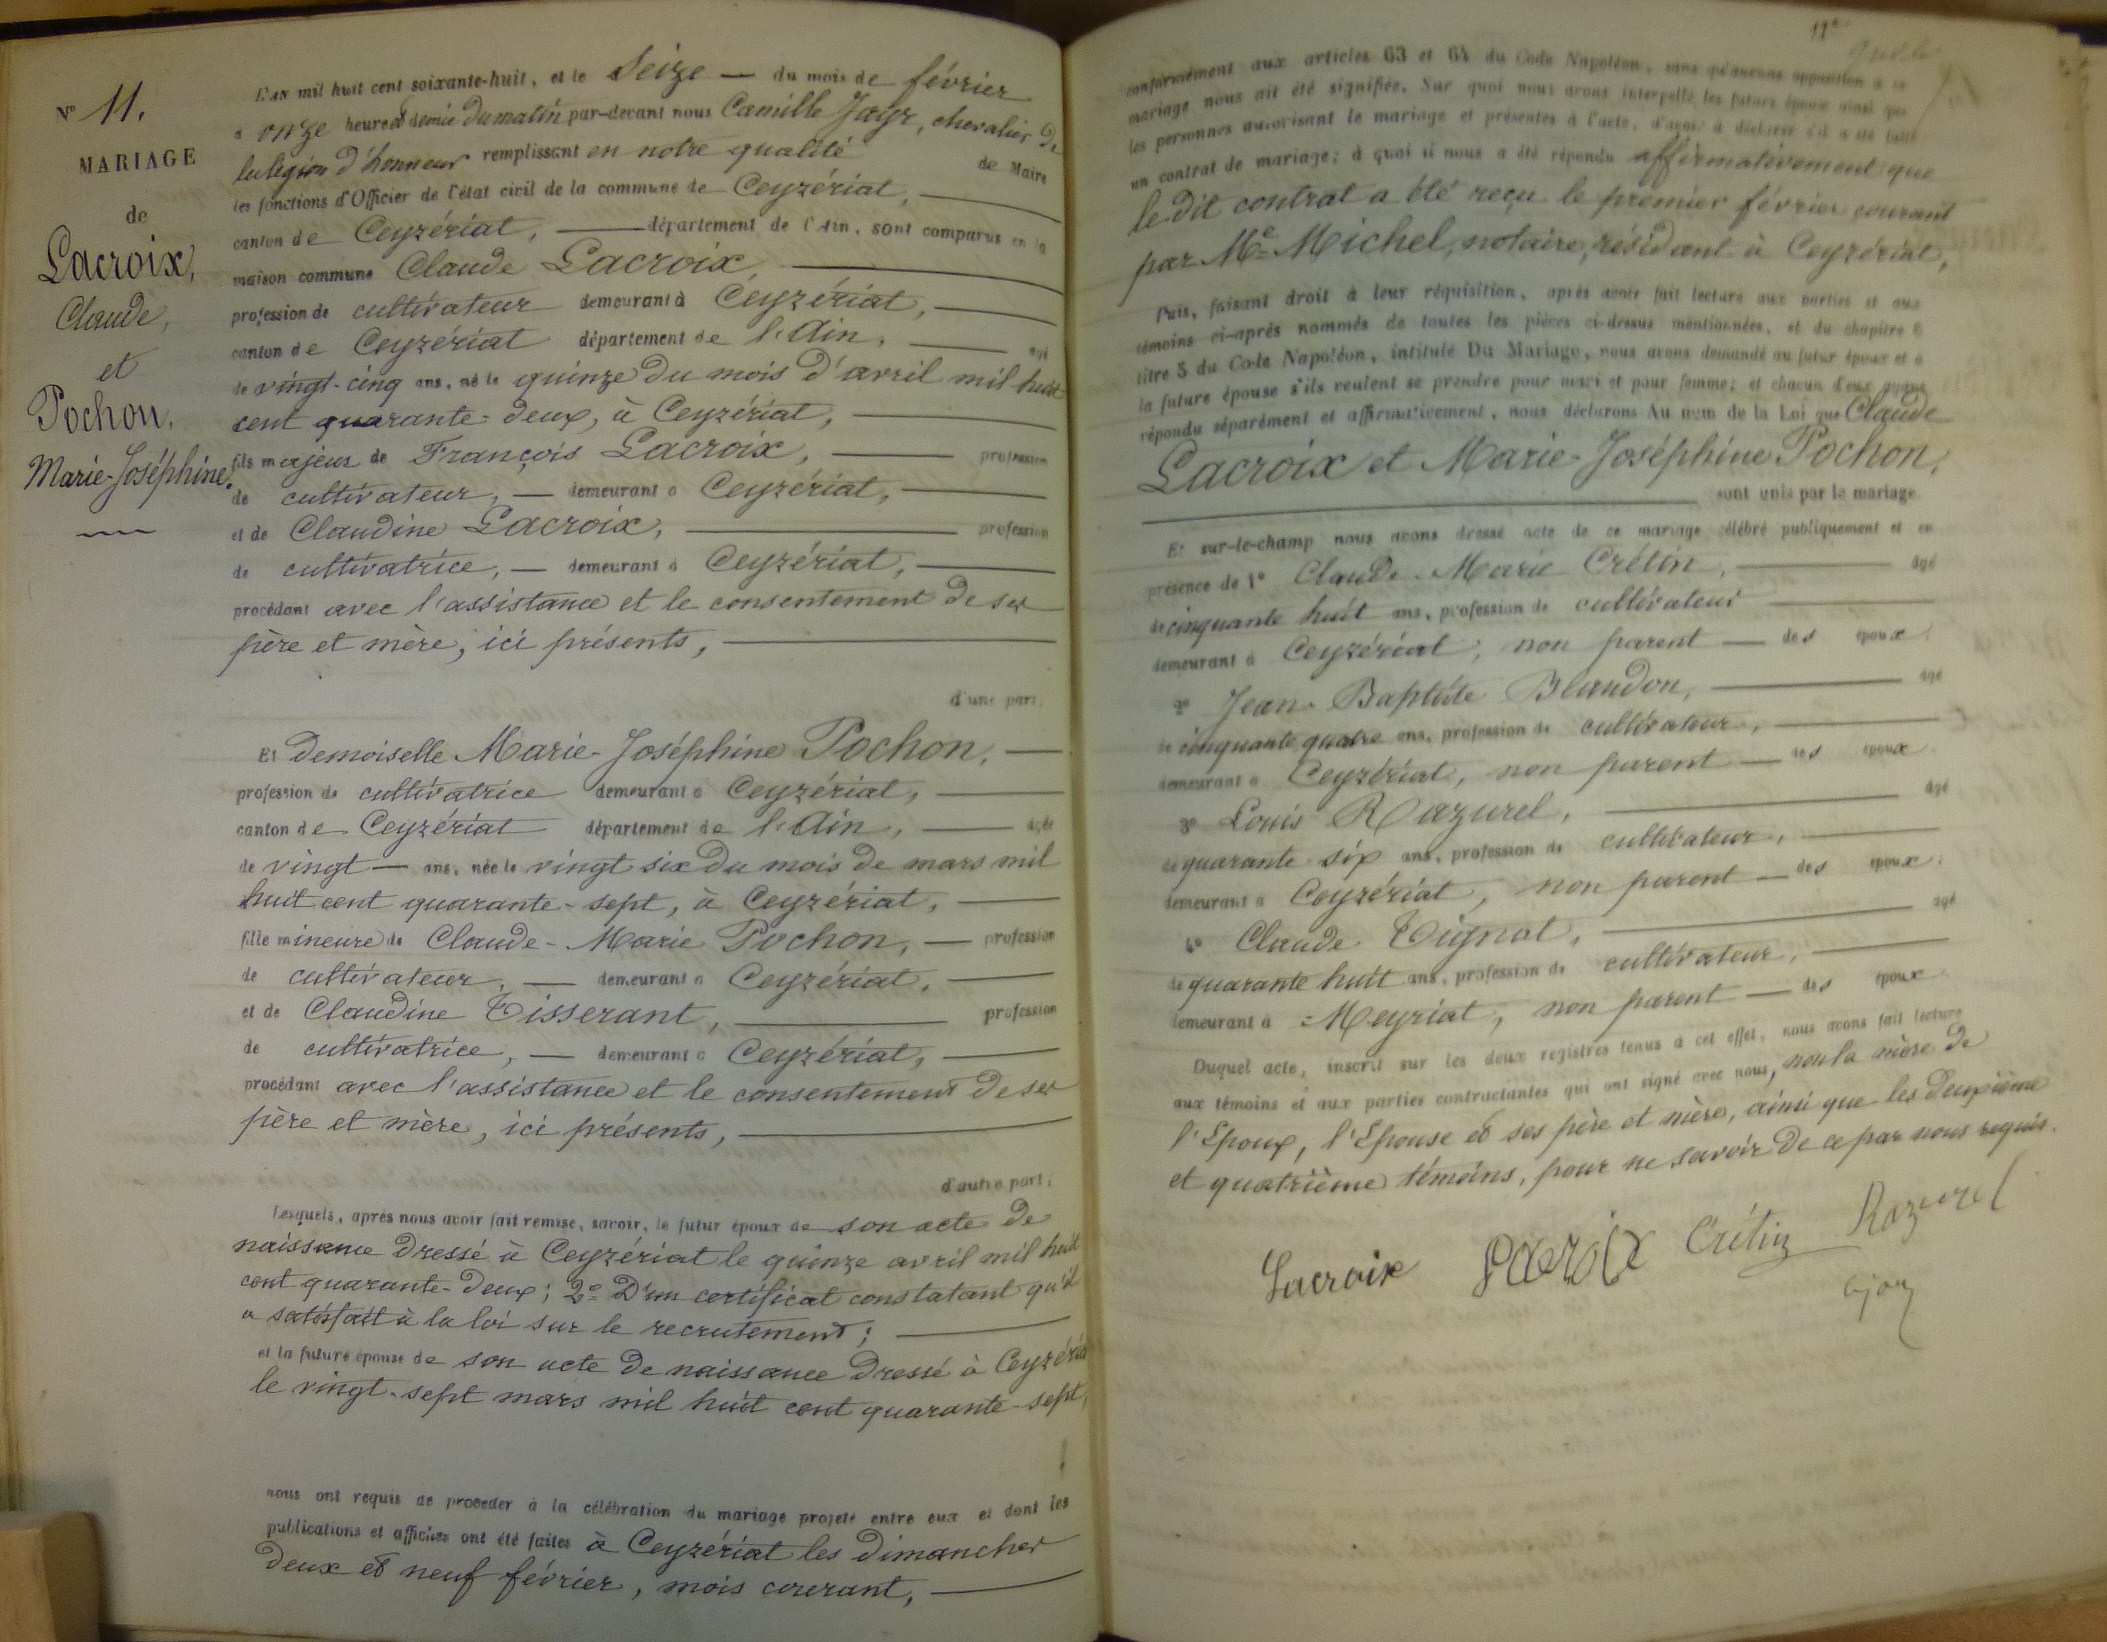 N° 11.
MARIAGE
de
Lacroix,
Claude,
et
Pochon,
Marie-Joséphine.
L'an mil huit cent soixante-huit, et le Seize — du mois de février
à onze heures et demie du matin par-devant nous Camille Jayr, chevalier de
la légion d'honneur remplissant en notre qualité de Maire
les fonctions d'Officier de l'état civil de la commune de Ceyzériat,
canton de Ceyzériat, département de l'Ain, sont comparus en la
maison commune Claude Lacroix,
profession de cultivateur demeurant à Ceyzériat,
canton de Ceyzériat département de l'Ain, âgé
de vingt-cinq ans, né le quinze du mois d'avril mil huit
cent quarante-deux, à Ceyzériat,
fils majeur de François Lacroix, profession
de cultivateur, — demeurant à Ceyzériat,
et de Claudine Lacroix, profession
de cultivatrice, — demeurant à Ceyzériat,
procédant avec l'assistance et le consentement de ses
père et mère, ici présents,
d'une part,
Et demoiselle Marie-Joséphine Pochon,
profession de cultivatrice demeurant à Ceyzériat,
canton de Ceyzériat département de l'Ain, âgée
de vingt — ans, née le vingt six du mois de mars mil
huit cent quarante-sept, à Ceyzériat,
fille mineure de Claude-Marie Pochon, — profession
de cultivateur, — demeurant à Ceyzériat,
et de Claudine Tisserant, profession
de cultivatrice, — demeurant à Ceyzériat,
procédant avec l'assistance et le consentement de ses
père et mère, ici présents,
d'autre part;
Lesquels, après nous avoir fait remise, savoir, le futur époux de son acte de
naissance dressé à Ceyzériat le quinze avril mil huit
cent quarante-deux; 2° D'un certificat constatant qu'il
a satisfait à la loi sur le recrutement;
et la future épouse de son acte de naissance dressé à Ceyzéria
le vingt-sept mars mil huit cent quarante-sept,
nous ont requis de procéder à la célébration du mariage projeté entre eux et dont les
publications et affiches ont été faites à Ceyzériat les dimanches
deux et neuf février, mois courant,
11e
conformément aux articles 63 et 64 du Code Napoléon, sans qu'aucune opposition à ce
mariage nous ait été signifiée. Sur quoi nous avons interpellé les futurs époux ainsi que
les personnes autorisant le mariage et présentes à l'acte, d'avoir à déclarer s'il a été fait
un contrat de mariage; à quoi il nous a été répondu affirmativement que
le dit contrat a été reçu le premier février courant
par Me Michel, notaire, résidant à Ceyzériat,
Puis, faisant droit à leur réquisition, après avoir fait lecture aux parties et aux
témoins ci-après nommés de toutes les pièces ci-dessus mentionnées, et du chapitre 6
titre 5 du Code Napoléon, intitulé Du Mariage, nous avons demandé au futur époux et à
la future épouse s'ils veulent se prendre pour mari et pour femme; et chacun d'eux ayant
répondu séparément et affirmativement, nous déclarons Au nom de la Loi que Claude
Lacroix et Marie-Joséphine Pochon,
sont unis par le mariage
Et sur-le-champ nous avons dressé acte de ce mariage célébré publiquement et en
présence de 1° Claude-Marie Crétin, âgé
de cinquante huit ans, profession de cultivateur
demeurant à Ceyzériat, non parent — des époux;
2° Jean-Baptiste Blandon, âgé
de cinquante quatre ans, profession de cultivateur,
demeurant à Ceyzériat, non parent — des époux
3° Louis Razurel, âgé
de quarante six ans, profession de cultivateur,
demeurant à Ceyzériat, non parent — des époux;
4° Claude Tignat, âgé
de quarante huit ans, profession de cultivateur,
demeurant à Meyriat, non parent — des époux
Duquel acte, inscrit sur les deux registres tenus à cet effet, nous avons fait lecture
aux témoins et aux parties contractantes qui ont signé avec nous, non la mère de
l'Epoux, l'Epouse et ses père et mère, ainsi que les deuxième
et quatrième témoins, pour ne savoir de ce par nous requis.
Lacroix Lacroix Crétin Razurel